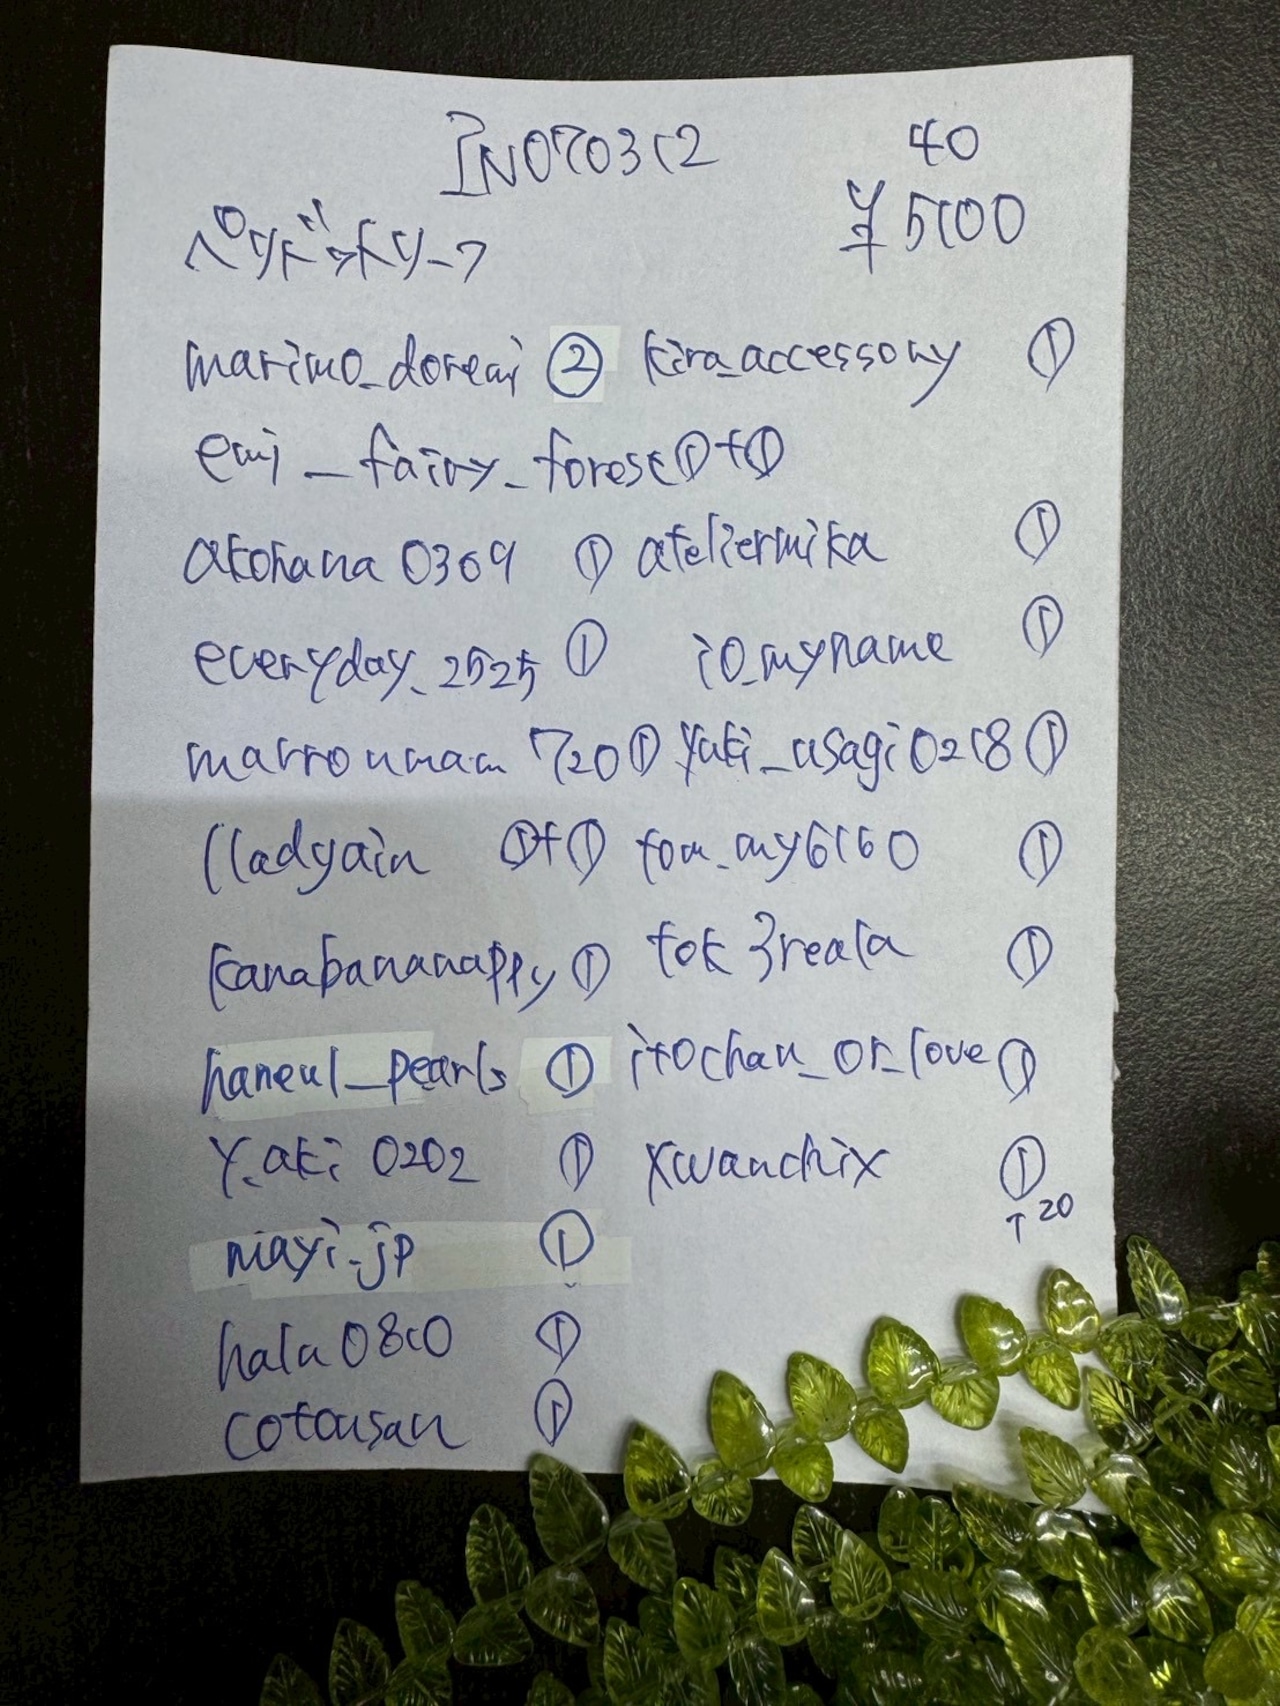 IN070312 40
ペリドットリーフ ¥5100
marimo_doremi ② kira_accessory ①
emi_fairy_forest ①+①
akohana0369 ① ateliermika ①
everyday_2525 ① io_myname ①
marronmam720 ① yuki_usagi0218 ①
lladyain ①+① tom_my6160 ①
kanabananappy ① tok3reala ①
haneul_pearls ① itochan_or_love ①
Y_aki0202 ① xwanchix ①
↑20
miayi_jp ①
halu0810 ①
cotousan ①